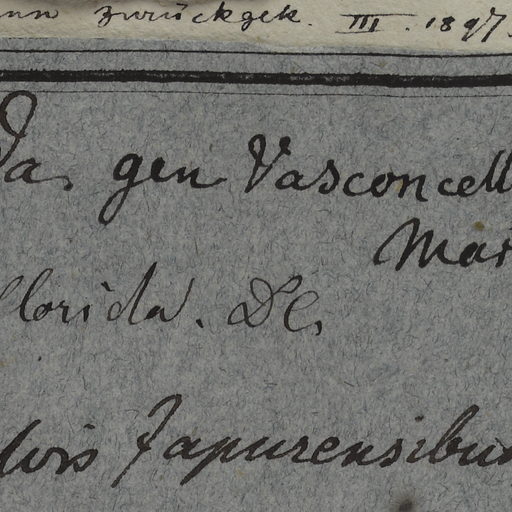 zurückgek. III. 1897.
gen Vasconcell
Mar
florida. DC.
Japurensibus